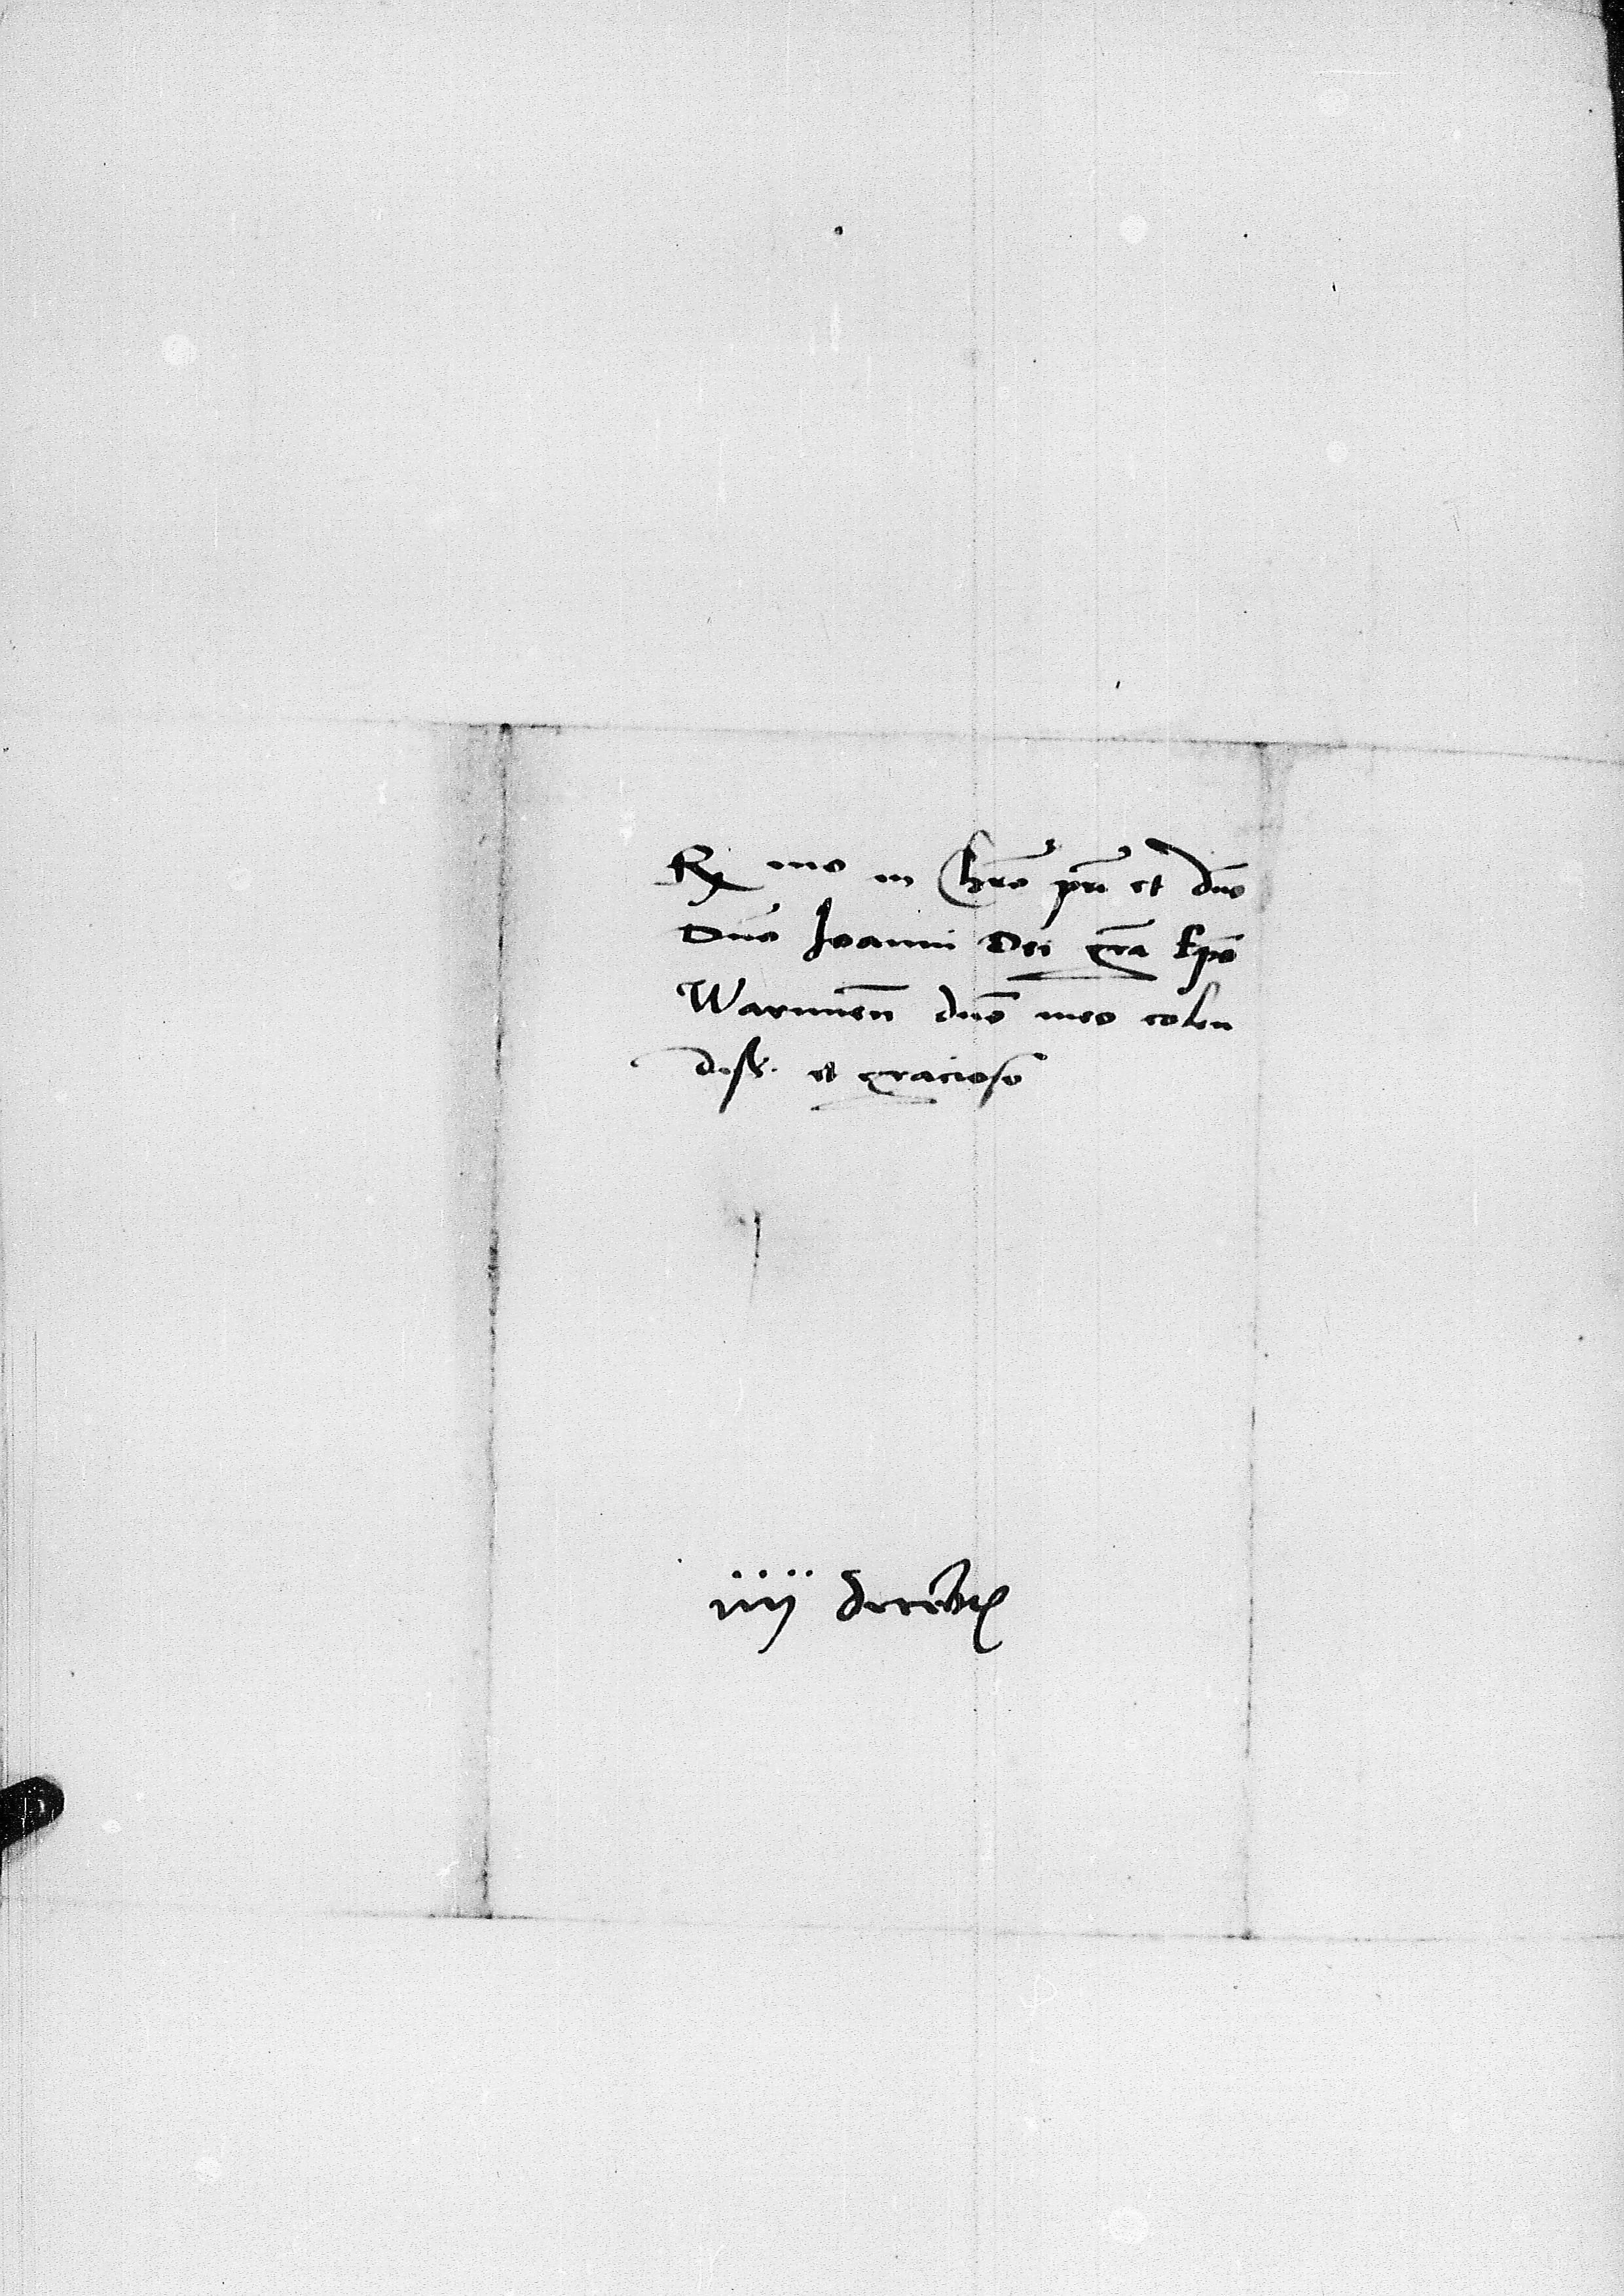 R mo in Chro pri et dno
Dno Joanni Dei gra Epo
Warmien dno meo colen
diss. et gracioso
iiij Decembr